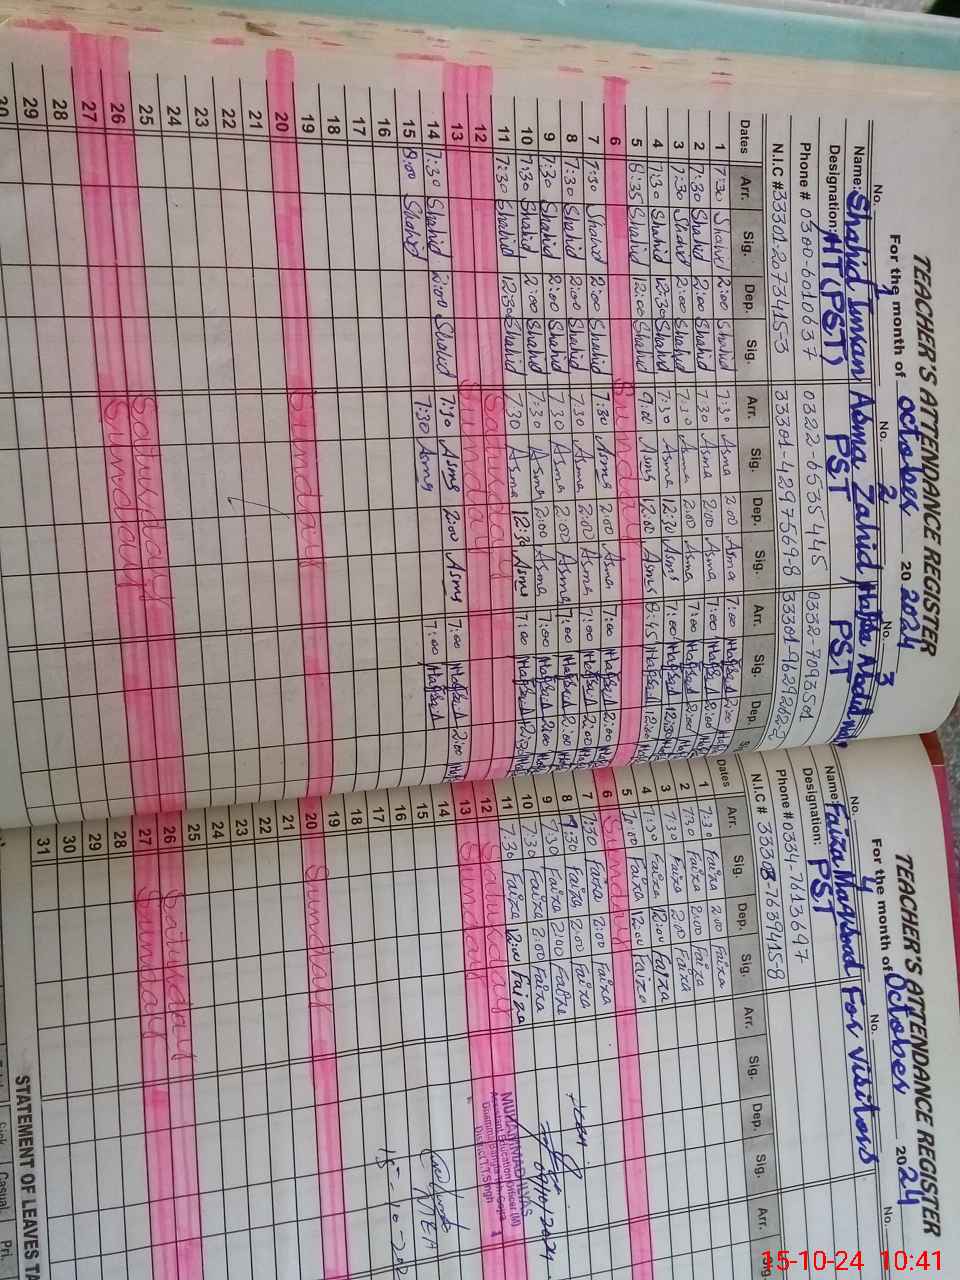 TEACHER'S ATTENDANCE REGISTER
For the month of October 20 2024
No. 1 No. 2 No. 3
Name: Shahid Imran Asma Zahid
Designation: HT (PST) PST PST
Phone # 0300-6010637 0322-6535445 0332 7093501
N.I.C # 33301-2073415-3 33301-4297569-8
Dates Arr. Sig. Dep. Sig. Arr. Sig. Dep. Sig. Arr. Sig. Dep.
1 7:30 Shahid 2:00 Shahid 7:30 Asma 2:00 Asma 7:00 2:00
2 7:30 Shahid 2:00 Shahid 7:30 Asma 2:00 Asma 7:00 2:00
3 7:30 Shahid 2:00 Shahid 7:30 Asma 2:00 Asma 7:00 2:00
4 7:30 Shahid 12:30 Shahid 7:30 Asma 12:30 Asma 7:00 12:30
5 8:35 Shahid 12:00 Shahid 9:00 Asma 12:00 Asma 8:45 12:00
6 Sunday
7 7:30 Shahid 2:00 Shahid 7:30 Asma 2:00 Asma 7:00 2:00
8 7:30 Shahid 2:00 Shahid 7:30 Asma 2:00 Asma 7:00 2:00
9 7:30 Shahid 2:00 Shahid 7:30 Asma 2:00 Asma 7:00 2:00
10 7:30 Shahid 2:00 Shahid 7:30 Asma 2:00 Asma 7:00 2:00
11 7:30 Shahid 12:30 Shahid 7:30 Asma 12:30 Asma 7:00 12:30
12 Saturday
13 Sunday
14 7:30 Shahid 2:00 Shahid 7:30 Asma 2:00 Asma 7:00 2:00
15 8:00 Shahid 7:30 Asma 7:00
16
17
18
19
20 Sunday
21
22
23
24
25
26 Saturday
27 Sunday
28
29
30
TEACHER'S ATTENDANCE REGISTER
For the month of October 20 24
No. 4 No. No.
Name: Faiza Maqsood For Visitors
Designation: PST
Phone # 0334-7613697
N.I.C # 33303-7639415-8
Dates Arr. Sig. Dep. Sig. Arr. Sig. Dep. Sig. Arr. Sig
1 7:30 Faiza 2:00 Faiza
2 7:30 Faiza 2:00 Faiza
3 7:30 Faiza 2:00 Faiza
4 7:30 Faiza 12:00 Faiza
5 Faiza 12:00 Faiza
6 Sunday
7 7:30 Faiza 2:00 Faiza
8 7:30 Faiza 2:00 Faiza
9 7:30 Faiza 2:00 Faiza
10 7:30 Faiza 2:00 Faiza
11 7:30 Faiza 12:00 Faiza
12 Saturday
13 Sunday
14
15
16
17
18
19
20 Sunday
21
22
23
24
25
26 Saturday
27 Sunday
28
29
30
31
09/10/2024
MUHAMMAD ILYAS
Assistant Education Officer (M)
District T.T.Singh
STATEMENT OF LEAVES TA
Sick Casual Pri.
15-10-24 10:41